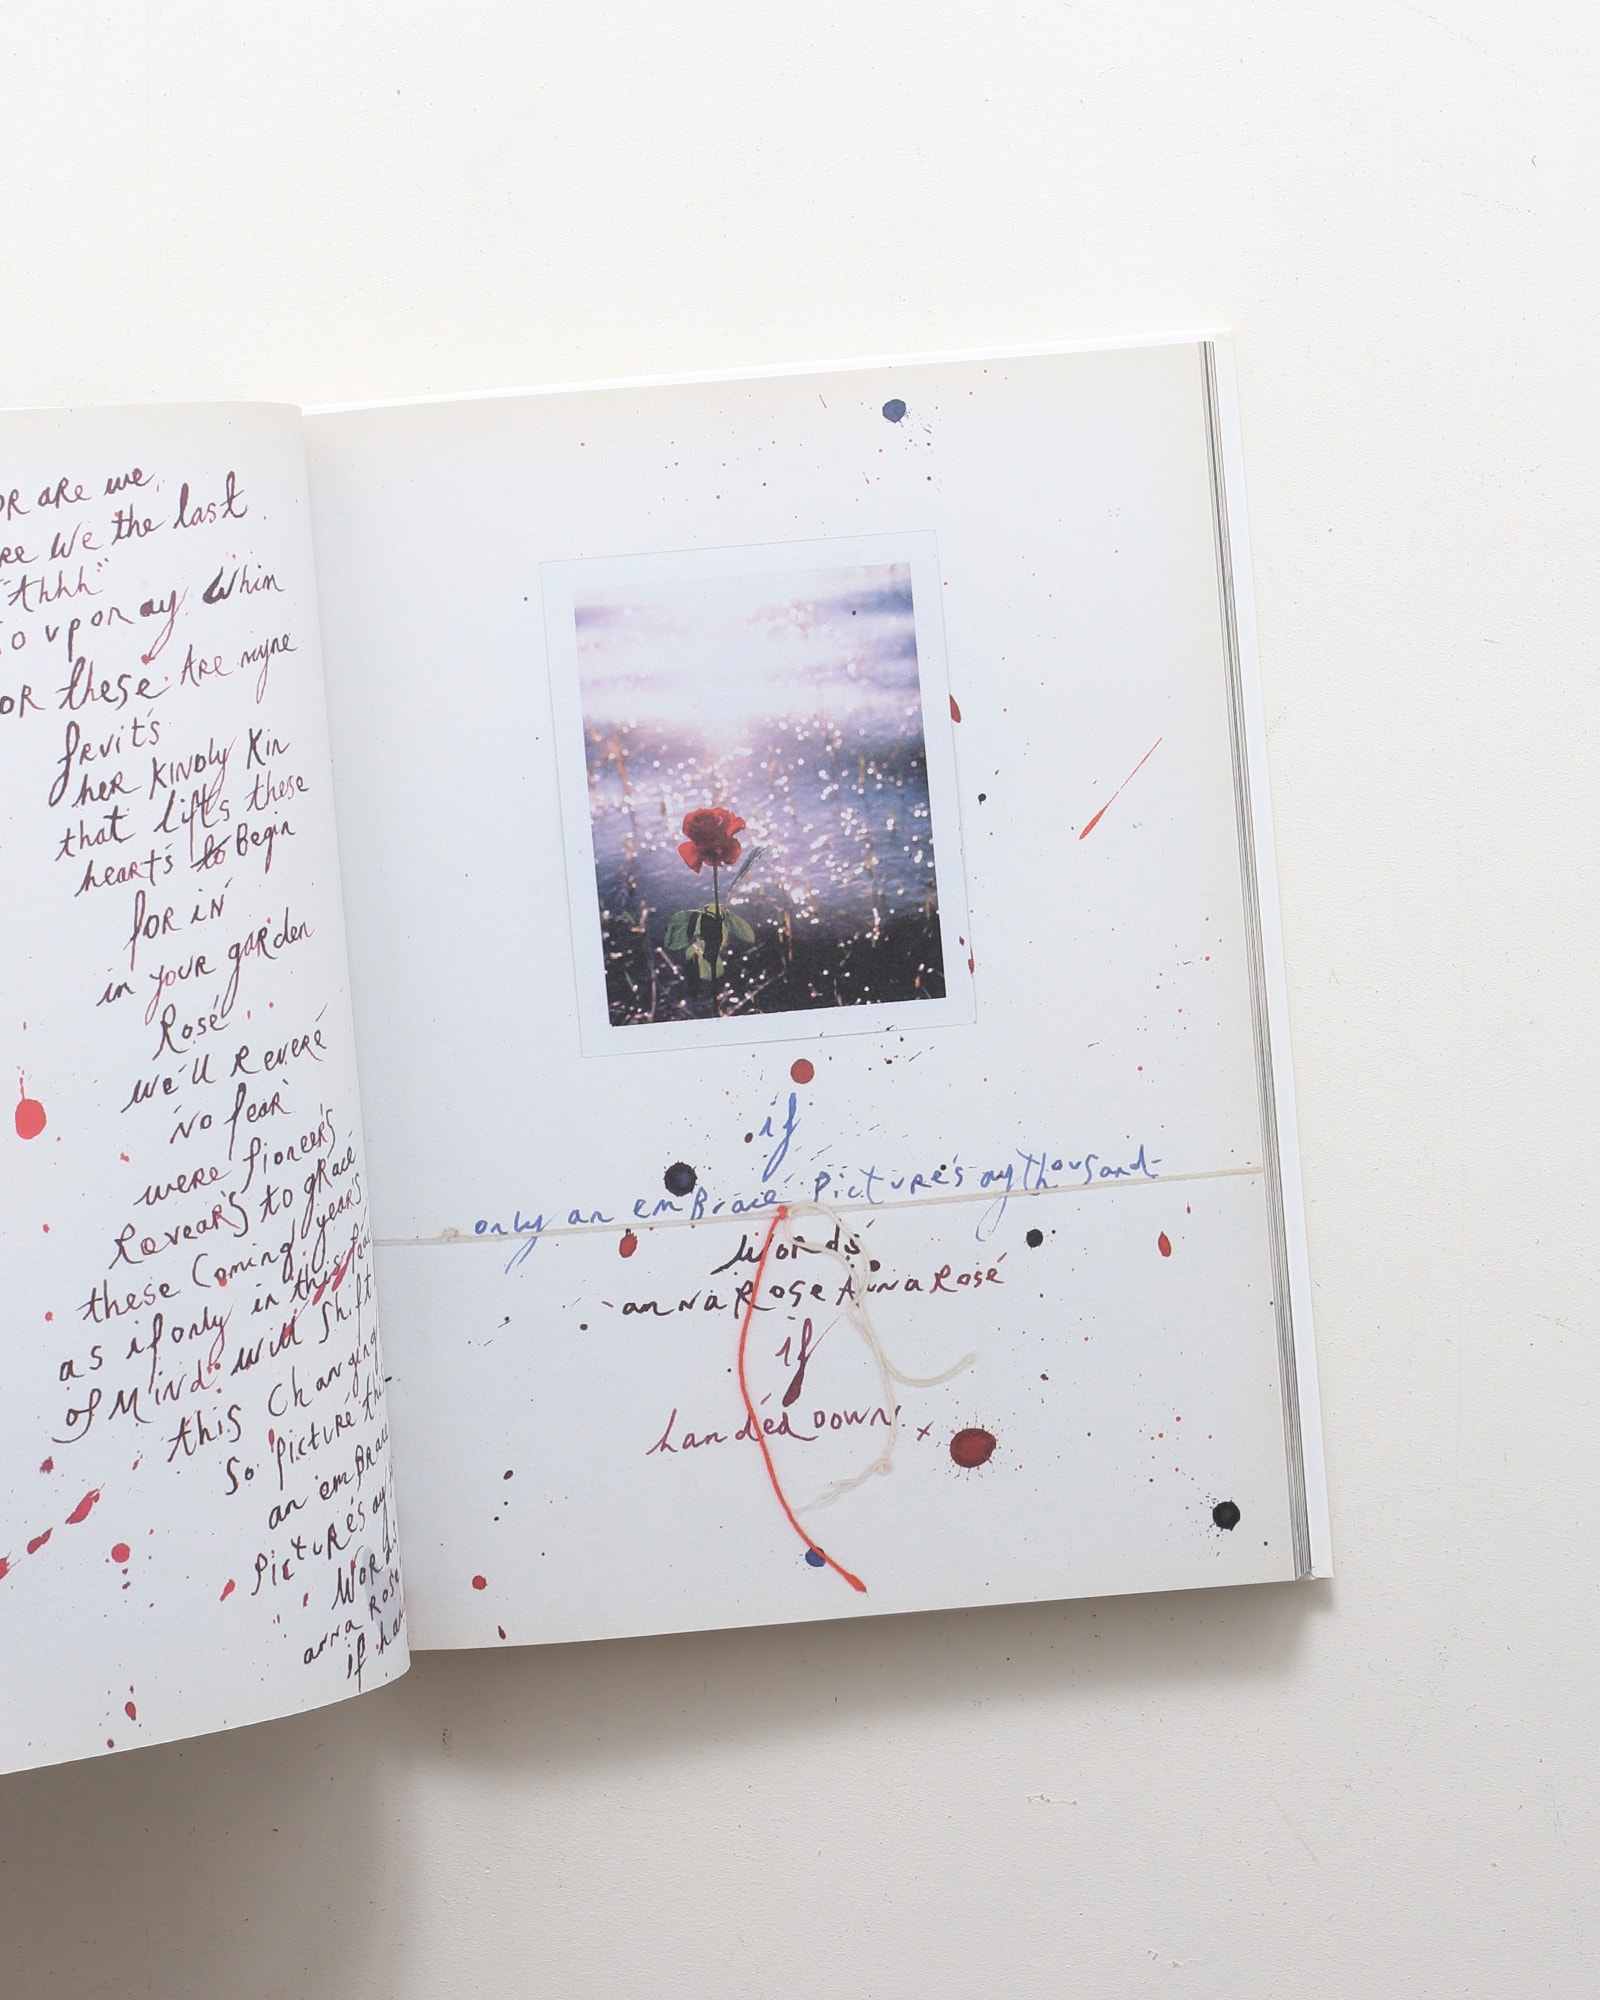 are we
we the last
"Ahhh"
upon ay whim
these Are myne
frvit's
her KINDly Kin
that lifts these
hearts to Begin
for iN
in your garden
Rosé
we'll Reveré
No fear
were pioneer's
Revear's to grace
these coming year's
as if only in this
of Mind will shift
this Changing
So picturé this
an emBrace
Picture's ay
Words
anna Rose
if
if
only an emBrace Picture's ay thousand-
Words
anna Rose Anna Rosé
if
handed down. x